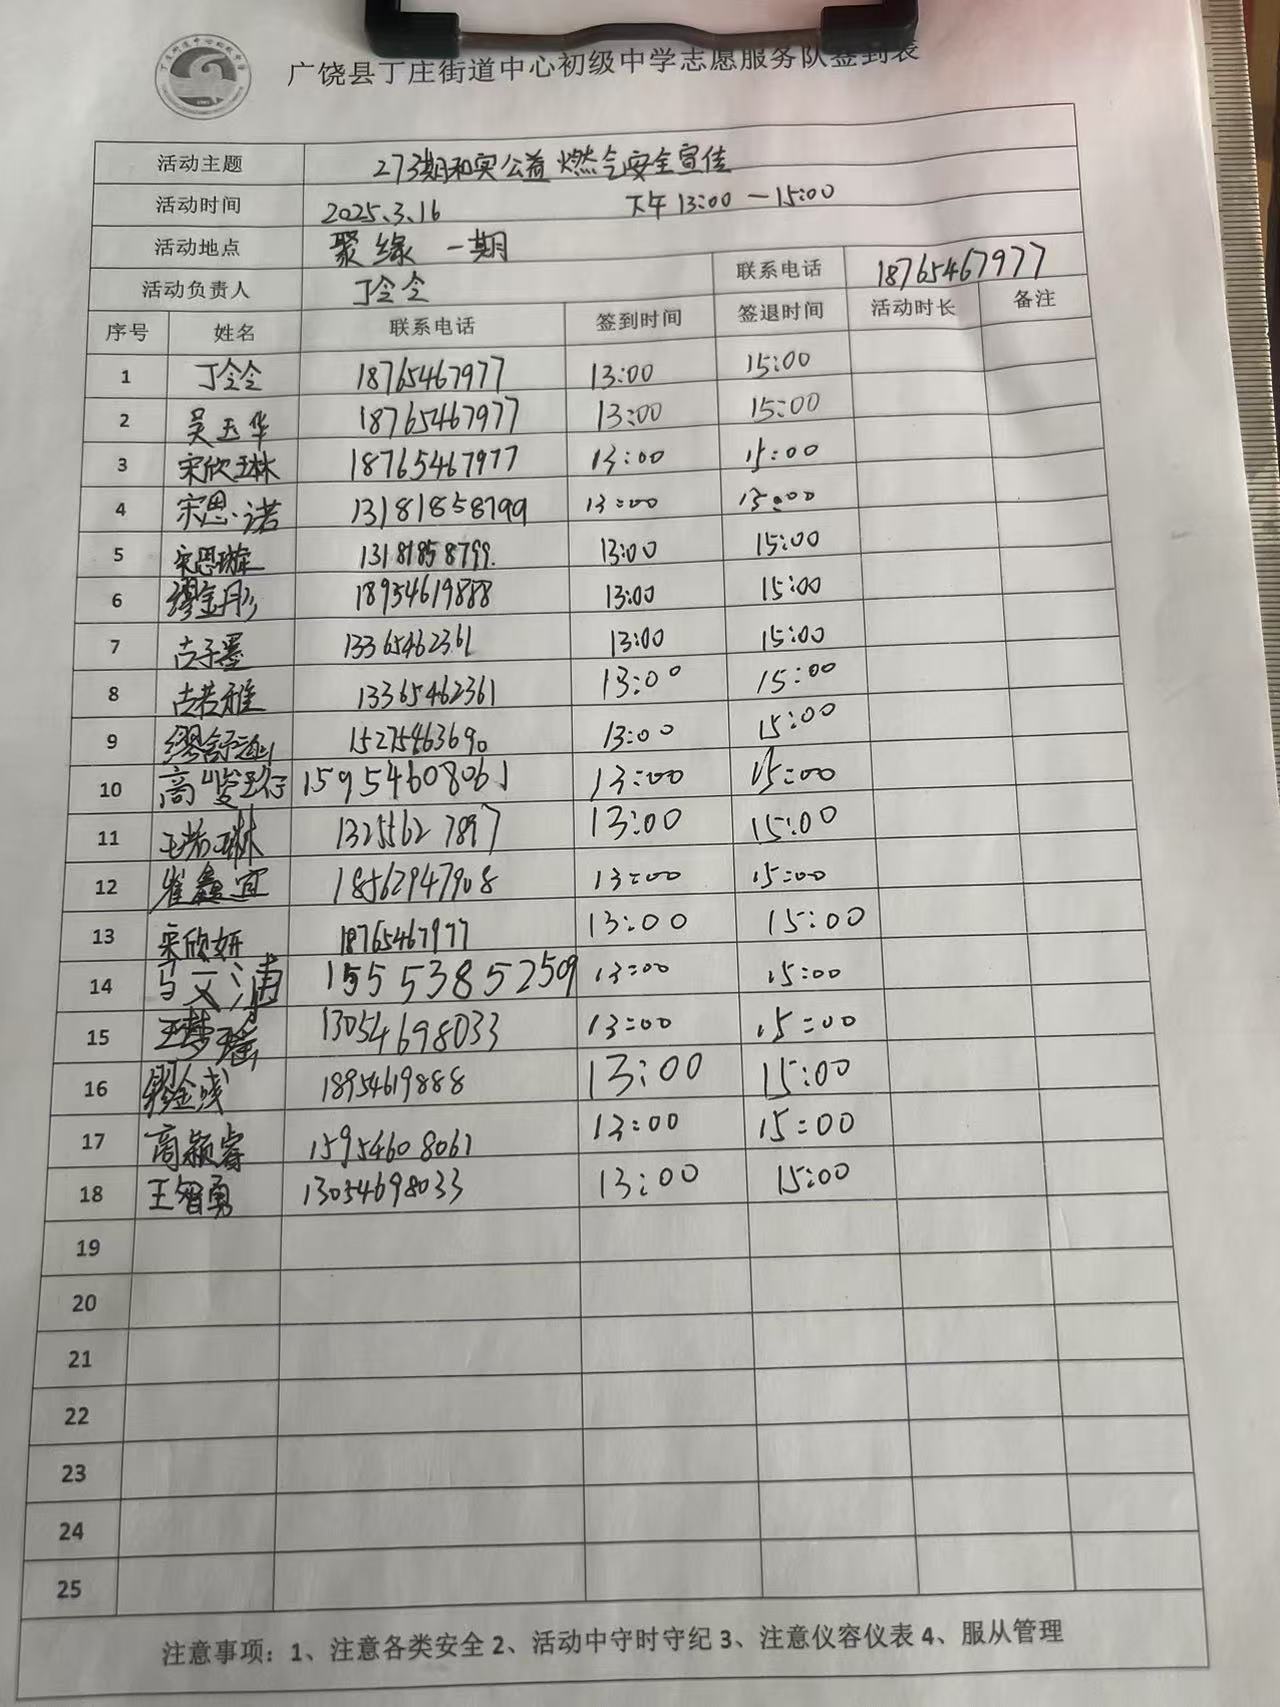 广饶县丁庄街道中心初级中学志愿服务队签到表
活动主题 273期和实公益 燃气安全宣传
活动时间 2025.3.16 下午 13:00 — 15:00
活动地点 聚缘 一期
活动负责人 丁令令 联系电话 18765467977
序号 姓名 联系电话 签到时间 签退时间 活动时长 备注
1 丁令令 18765467977 13:00 15:00
2 吴玉华 18765467977 13:00 15:00
3 宋欣琳 18765467977 13:00 15:00
4 宋思诺 13181858799 13:00 15:00
5 宋思璇 13181858799. 13:00 15:00
6 缪金彤 18954619888 13:00 15:00
7 古子墨 13365462361 13:00 15:00
8 古若雅 13365462361 13:00 15:00
9 缪舒涵 15275463690 13:00 15:00
10 高峻珩 15954608061 13:00 15:00
11 13255627897 13:00 15:00
12 崔鑫宜 18562947908 13:00 15:00
13 宋欣妍 18765467977 13:00 15:00
14 马文浦 15553852509 13:00 15:00
15 王梦瑶 13054698033 13:00 15:00
16 18954619888 13:00 15:00
17 高颖睿 15954608061 13:00 15:00
18 王智勇 13054698033 13:00 15:00
19
20
21
22
23
24
25
注意事项：1、注意各类安全 2、活动中守时守纪 3、注意仪容仪表 4、服从管理